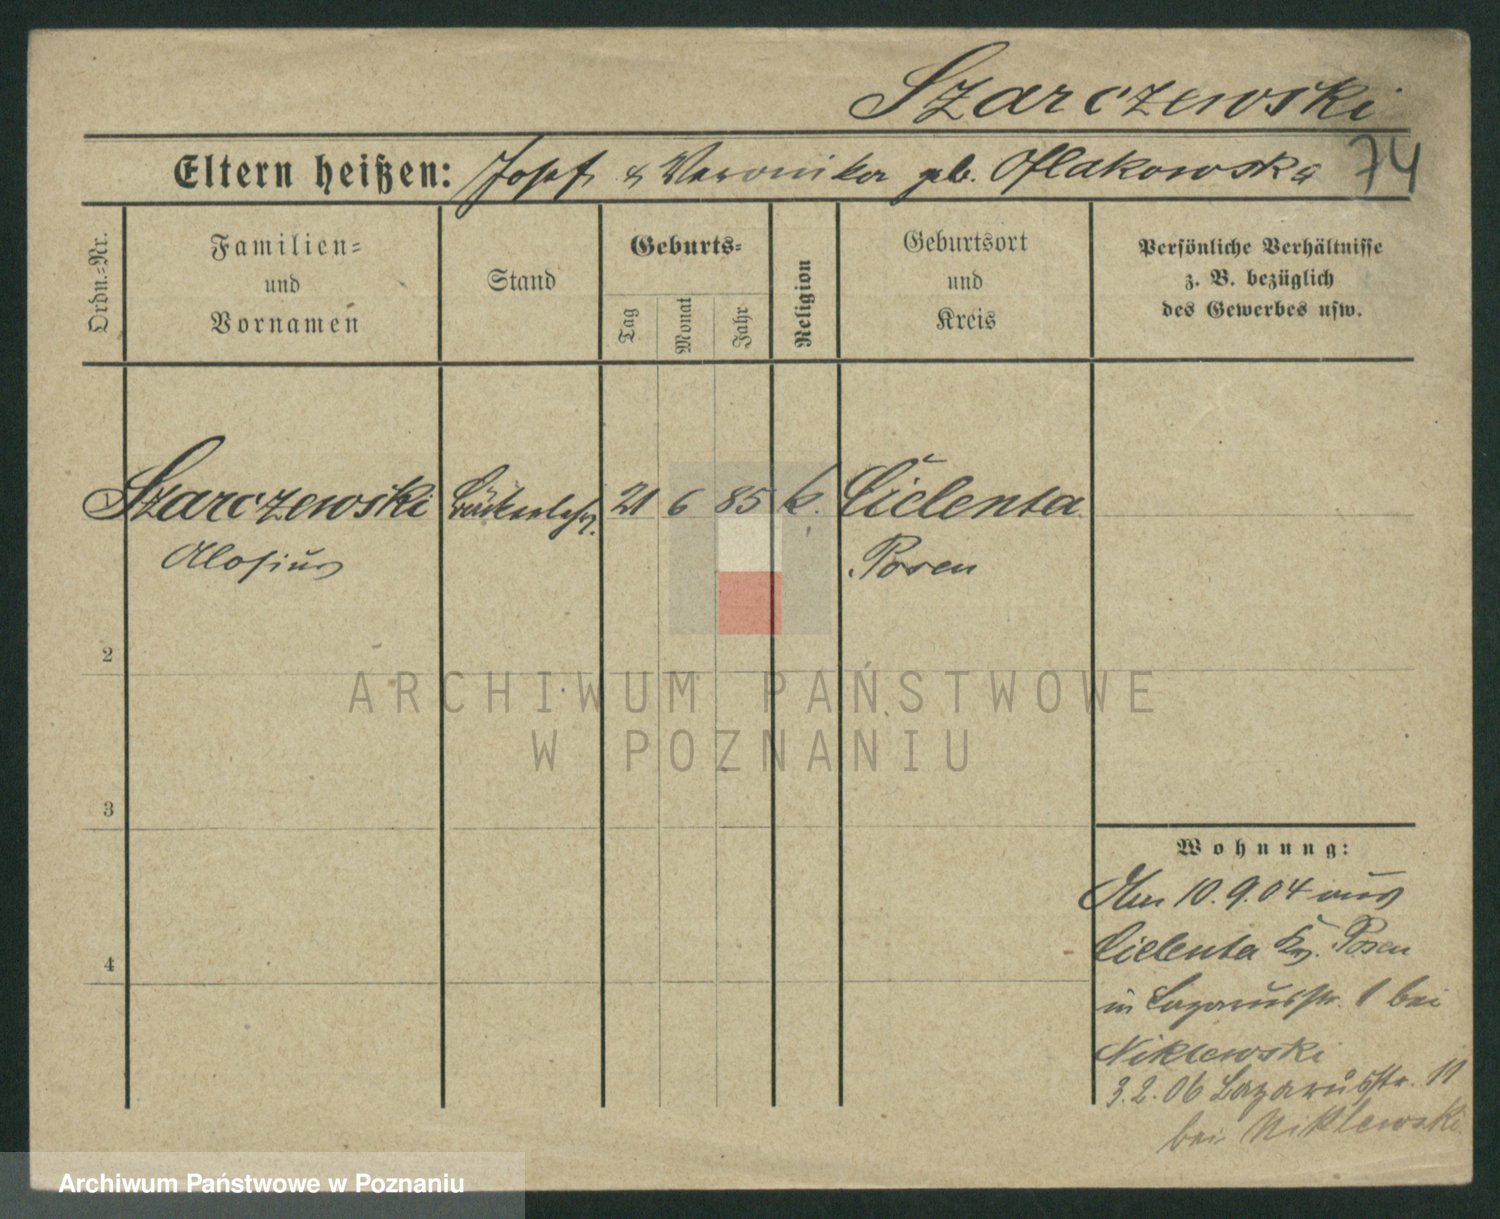 Szarczewski
Eltern heißen: Josef & Veronika geb. 74
Ordn.-Nr.
Familien-
und
Vornamen
Stand
Geburts-
Tag
Monat
Jahr
Religion
Geburtsort
und
Kreis
Persönliche Verhältnisse
z. B. bezüglich
des Gewerbes usw.
Szarczewski Bäckerlehrl. 21 6 85 k. Cielenta
Alosius Posen
2
ARCHIWUM PAŃSTWOWE
W POZNANIU
3
Wohnung:
10.9.04 aus
Cielenta Kr. Posen
4
in Lazarusstr. 1 bei
Niklewski
3.2.06 Lazarusstr. 11
bei Niklewski
Archiwum Państwowe w Poznaniu